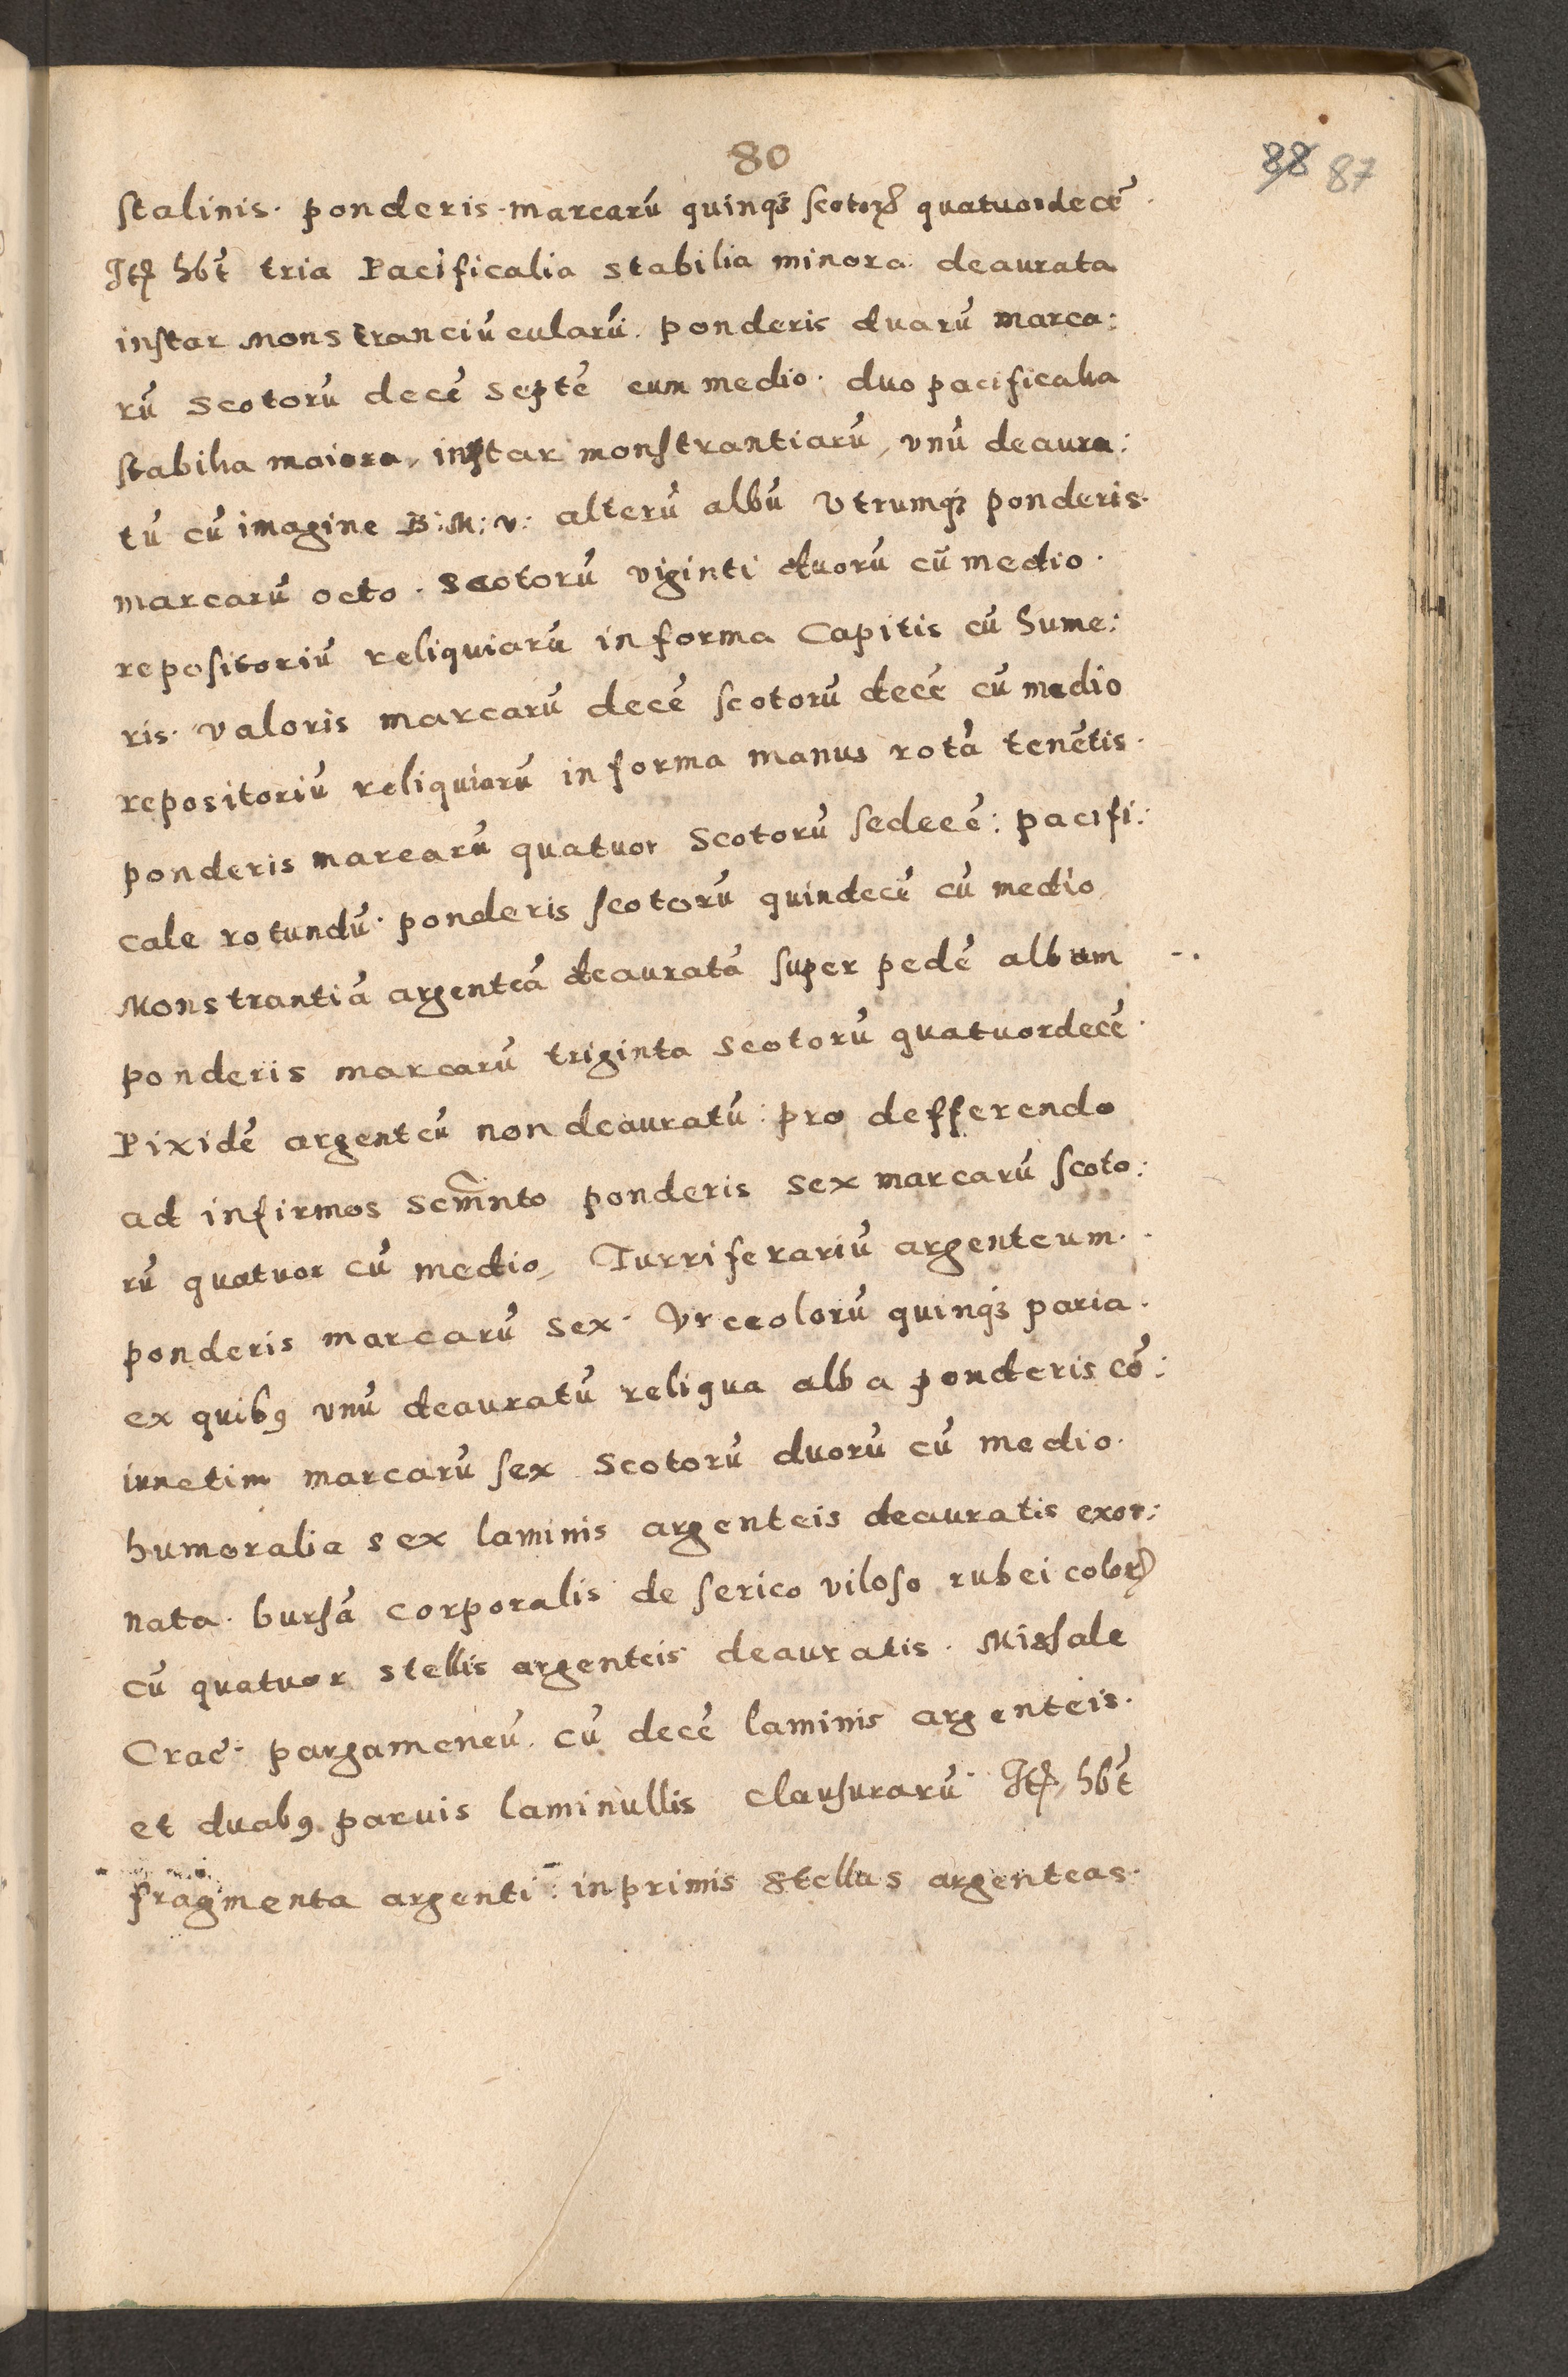 80
88 87
stalinis. ponderis. marcarū quinqꝫ scotorꝫ quatuordecē.
Itꝫ hbt̄ tria Pacificalia stabilia minora deaurata
instar Monstranciūcularū. ponderis duarū marca:
rū scotorū decē septē cum medio. duo pacificalia
stabilia maiora, instar monstrantiarū, vnū deaura:
tū cū imagine B: M: v: alterū albū Vtrumqꝫ ponderis.
marcarū octo. scotorū viginti duorū cū medio.
repositoriū reliquiarū in forma Capitis cū hume:
ris. valoris marcarū decē scotorū decē cū medio
repositoriū reliquiarū in forma manus rotā tenētis.
ponderis marcarū quatuor Scotorū sedecē: pacifi:
cale rotundū. ponderis scotorū quindecē cū medio
Monstrantiā argenteā deauratā super pedē album -.
ponderis marcarū triginta scotorū quatuordecē.
Pixidē argenteū non deauratū: pro defferendo
ad infirmos scm̄nto ponderis sex marcarū scoto:
rū quatuor cū medio, Turriferariū argenteum.
ponderis marcarū sex. Vrceolorū quinqꝫ paria.
ex quibꝰ vnū deauratū reliqua alba ponderis cō:
iunctim marcarū sex scotorū duorū cū medio.
humoralia sex laminis argenteis deauratis exor:
nata. bursā corporalis de serico viloso rubei colorꝭ
cū quatuor stellis argenteis deauratis. Missale
Crac̄. pargameneū. cū decē laminis argenteis.
et duabꝰ paruis laminullis clausurarū. Itꝫ, hbt̄
fragmenta argenti: inprimis stellas argenteas.